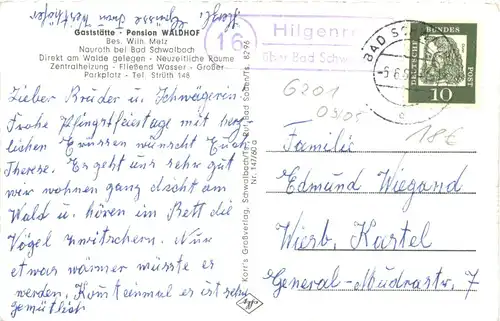 Herzl. Grüsse Frau Westhäfer
Gaststätte · Pension WALDHOF
Bes. Wilh. Metz
Nauroth bei Bad Schwalbach
Direkt am Walde gelegen - Neuzeitliche Räume
Zentralheizung - Fließend Wasser - Großer
Parkplatz - Tel. Strüth 148
Lieber Bruder u. Schwägerin
Frohe Pfingstfeiertage mit herz
lichen Grüssen wünscht Euch
Therese. Es geht uns sehr gut
wir wohnen ganz dicht am
Wald u. hören im Bett die
Vögel zwitschern. Nur
etwas wärmer müsste es
werden. Kommt einmal es ist sehr
gemütlich
Korr's Großverlag, Schwalbach/Ts., Ruf Bad Soden/Ts. 8296
Nr. 14760 a
16
Hilgenr
über Bad Schw
BAD SC
DEUTSCHE BUNDESPOST
10
6201
09/08
18€
Familie
Edmund Wiegand
Wiesb. Kastel
General-Mudrastr. 7